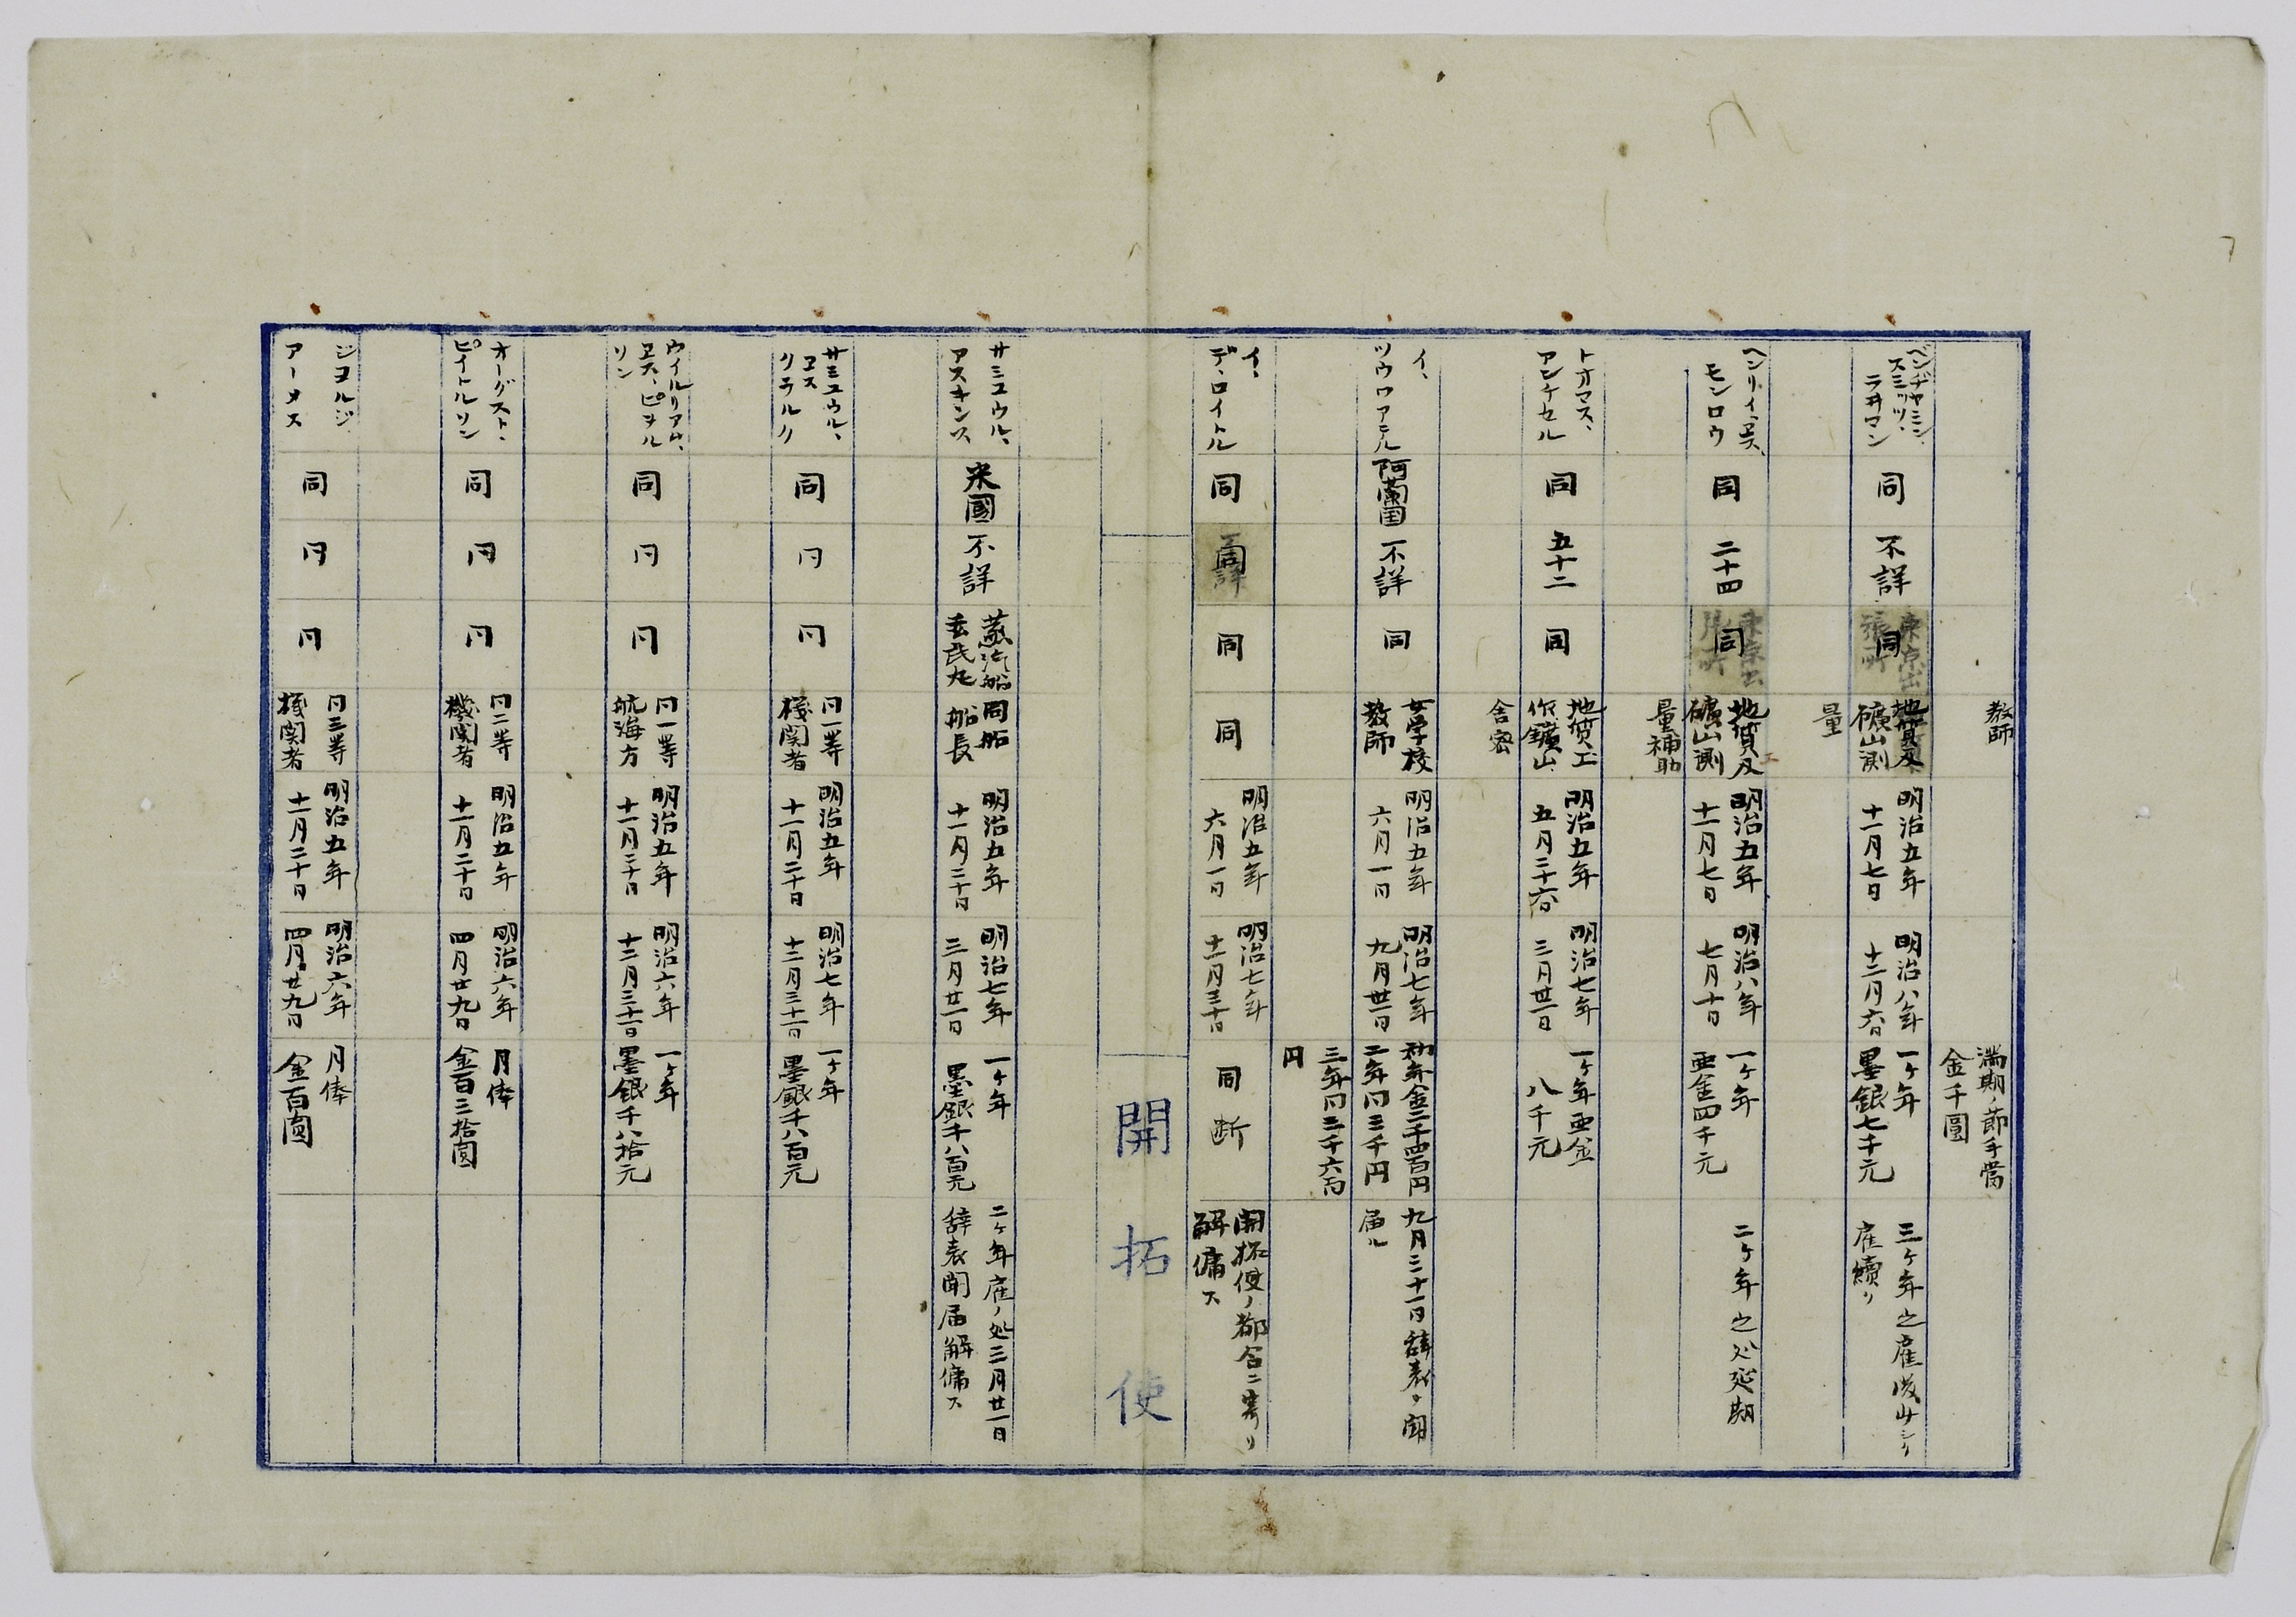 教師
満期ノ節手當
金千圓
ベンヂヤミン、
スミツツ、
ライマン
同
不詳
同
地質及
礦山測
量
明治五年
十一月七日
明治八年
十二月六日
一ケ年
墨銀七千元
三ケ年之雇
雇續リ
ヘンリイ、ヱス、
モンロウ
同
二十四
同
地質及
礦山測
量補助
明治五年
十一月七日
明治八年
七月十日
一ケ年
亜金四千元
二ケ年之処延期
トオマス、
アンチセル
同
五十二
同
地質工
作鑛山
舎密
明治五年
五月二十六日
明治七年
三月廿一日
一ケ年亜金
八千元
イ、
ツウワアテル
阿蘭国
不詳
同
女学校
教師
明治五年
六月一日
明治七年
九月廿一日
初年金二千四百円
二年同三千円
三年同三千六百
円
九月二十一日辞表ヲ聞
届ル
イ、
デ、ロイトル
同
同
同
同
明治五年
六月一日
明治七年
十二月三十日
同断
開拓使ノ都合ニ寄リ
解傭ス
開拓使
サミユウル、
アスキンス
米國
不詳
蒸汽船
玄武丸
同船
船長
明治五年
十一月二十日
明治七年
三月廿一日
一ケ年
墨銀千八百元
二ケ年雇ノ処三月廿一日
辞表聞届解傭ス
サミユウル、
ヱス
クラルク
同
同
同
同一等
機関者
明治五年
十一月二十日
明治七年
十二月三十一日
一ケ年
墨銀千八百元
ウイルリアム、
ヱス、ピヲル
リン
同
同
同
同一等
航海方
明治五年
十一月二十日
明治六年
十二月三十一日
一ケ年
墨銀千八拾元
オーグスト、
ピイトルソン
同
同
同
同二等
機関者
明治五年
十一月二十日
明治六年
四月廿九日
月俸
金百三拾圓
ジヨルジ
アーメス
同
同
同
同三等
機関者
明治五年
十一月二十日
明治六年
四月廿九日
月俸
金百圓